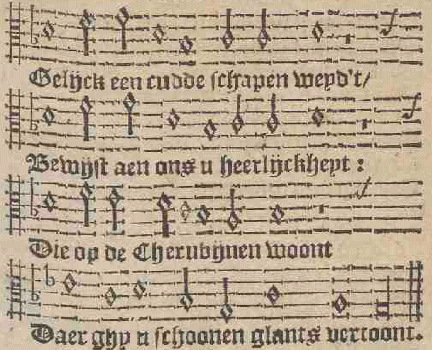 Gelijck een cudde schapen weyd't/
Bewijst aen ons u heerlijckheyt :
Die op de Cherubijnen woont
Daer ghy u schoonen glants vertoont.